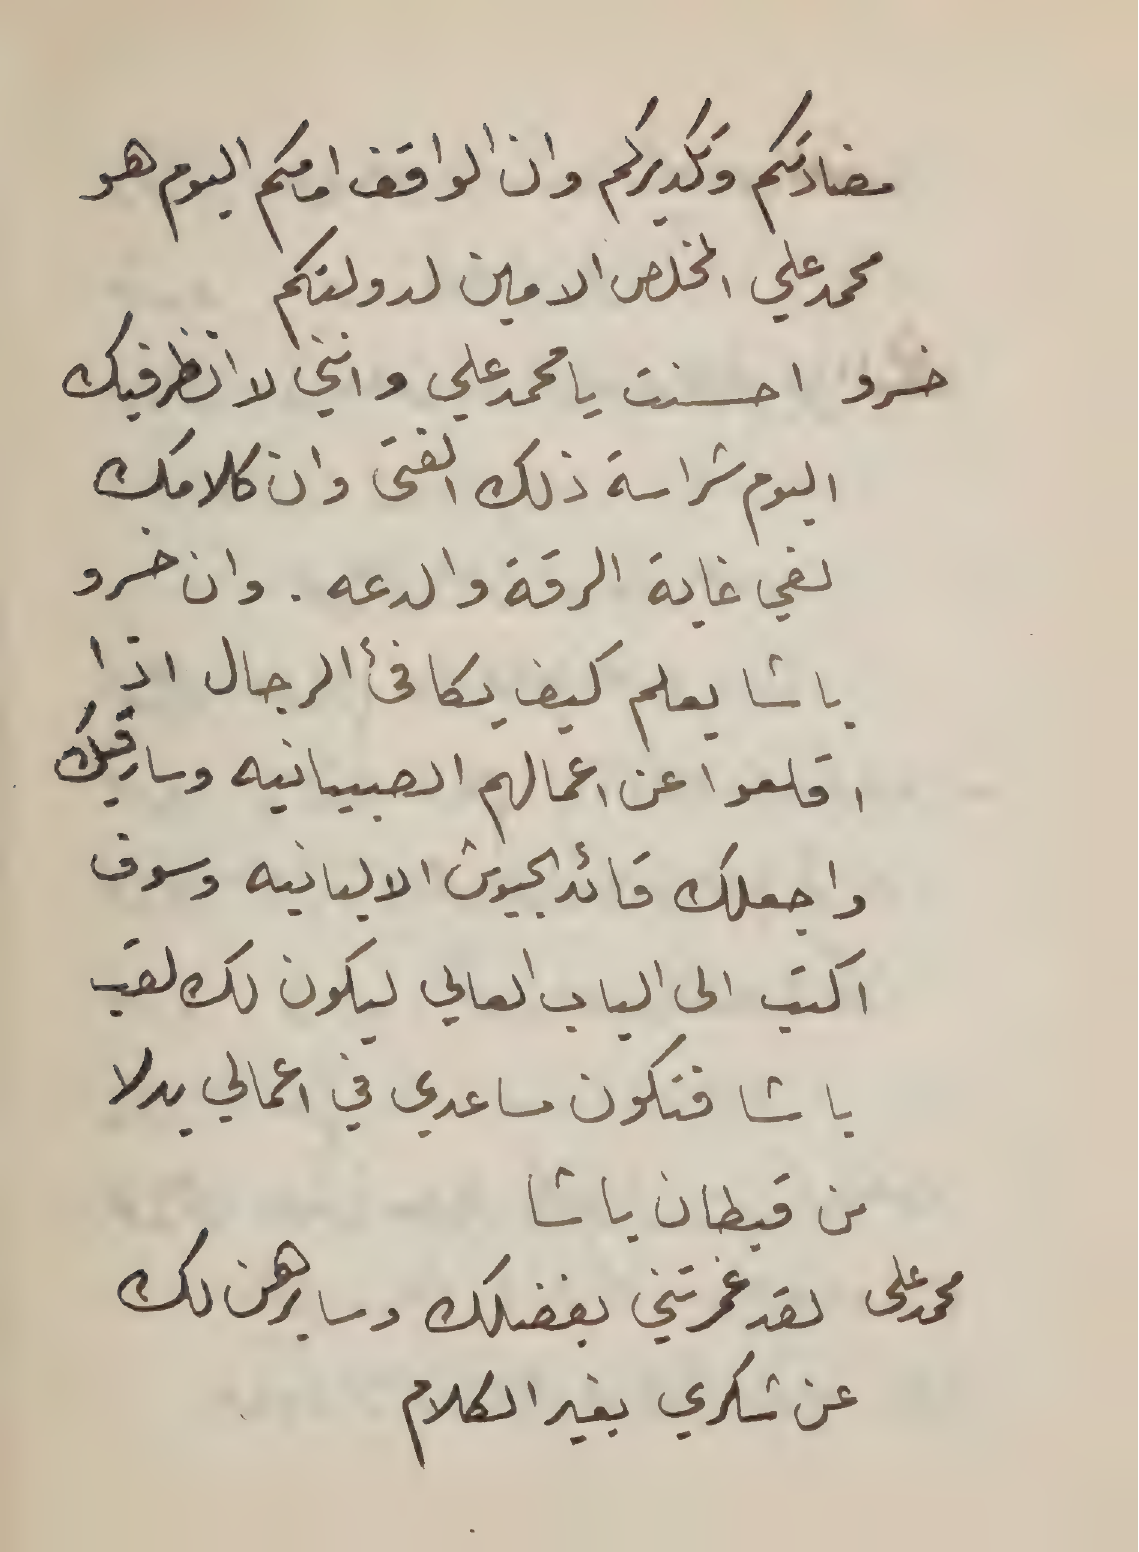 مضادتكم وتكديركم وان الواقف امامكم اليوم هو
محمد علي المخلص الامين لدولتكم
خسرو احسنت يا محمد علي وانني لا انظر فيك
اليوم شراسة ذلك الفتى وان كلامك
لفي غاية الرقة والدعه . وان خسرو
باشا يعلم كيف يكافئ الرجال اذا
اقلعوا عن اعمالهم الصبيانيه وسارقيك
واجعلك قائد الجيوش الالبانيه وسوف
اكتب الى الباب العالي ليكون لك لقب
باشا فتكون مساعدي في اعمالي بدلا
من قبطان باشا
محمد علي لقد غمرتني بفضلك وسابرهن لك
عن شكري بغير الكلام